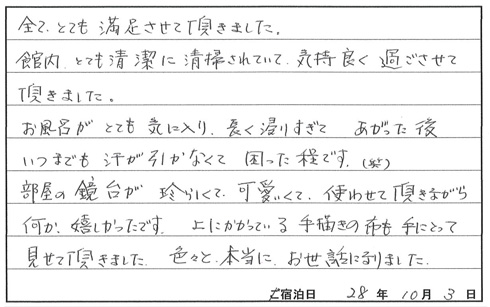 全て、とても満足させて頂きました。
館内、とても清潔に清掃されていて、気持良く過ごさせて
頂きました。
お風呂がとても気に入り、長く浸りすぎて あがった後
いつまでも汗が引かなくて困った程です。(笑)
部屋の鏡台が珍らしくて、可愛いくて、使わせて頂きながら
何か、嬉しかったです。上にかかっている手描きの布も手にとって
見せて頂きました。色々と、本当に、お世話になりました。
ご宿泊日 28年10月3日